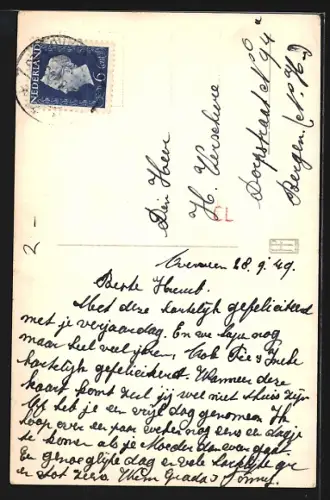 NEDERLAND
6 cent
Den Heer
H. Verschure
Dorpstraat No 94 a
Bergen (N.H.)
2 -
28.9.'49.
Beste
Met deze hartelijk gefeliciteerd
met je verjaardag. En we hopen nog
maar heel veel jaren. Ook
hartelijk gefeliciteerd. Wanneer deze
kaart komt zul jij wel niet thuis zijn
Of heb je een vrije dag genomen. Ik
hoop over een paar weken nog eens een dagje
te komen als je Moeder dan even gaat.
En genoegelijke dag en vele hartelijke gr
en